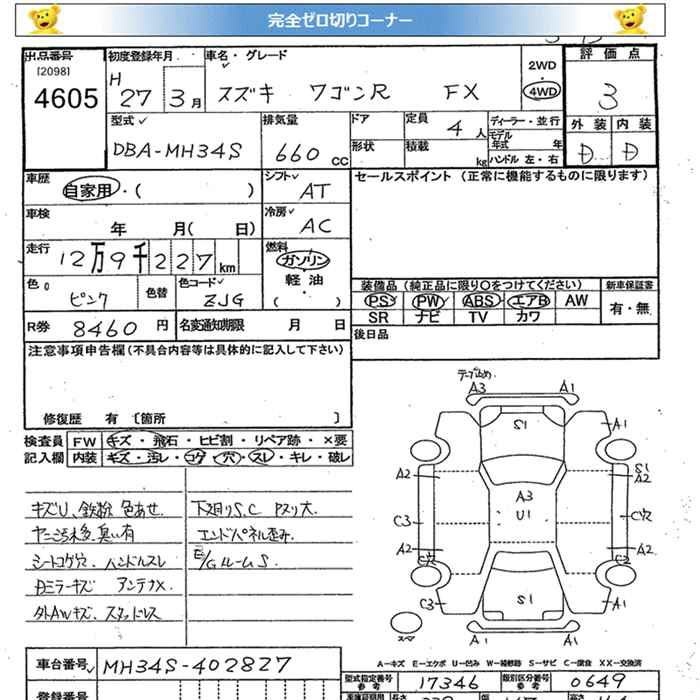 完全ゼロ切りコーナー
出品番号 初度登録年月 車名・グレード 2WD 評価点
[2098] H
4605 27 3月 スズキ ワゴンR FX 4WD 3
型式 排気量 ドア 定員 4人 ディーラー・並行 外装 内装
モデル年式 年
DBA-MH34S 660cc 形状 積載 kg ハンドル 左・右 D D
車歴 自家用・( ) シフト AT セールスポイント (正常に機能するものに限ります)
車検 年 月( 日) 冷房 AC
走行 12万9千227km 燃料 ガソリン
軽油
( )
色 ピンク 色替 色コード ZJG 装備品(純正品に限り○をつけてください) 新車保証書
PS PW ABS エアB AW 有・無
SR ナビ TV カワ
R券 8460円 名変通知期限 月 日 後日品
注意事項申告欄(不具合内容等は具体的に記入して下さい)
修復歴 有〔箇所 〕
検査員 FW キズ・飛石・ヒビ割・リペア跡・×要
記入欄 内装 キズ・汚レ・コゲ・穴・スレ・キレ・破レ
キズU、鉄粉 色あせ
臭い有
シートコゲ穴、ハンドルスレ
ミラーキズ アンテナX
外AWキズ、スタッドレス
下廻りS.C Pスリ大
エンドパネル歪み
E/GルームS
テープ止め
A3 A1
S1
A1
A2 S1
A2
A3
U1
C3 C穴
A2 A2
C2 C2
C3 S1 A1
スペア
A1 A1
A-キズ E-エクボ U-凹み W-補修跡 S-サビ C-腐食 XX-交換済
車台番号 MH34S-402827 型式指定番号 参考 17346 類別区分番号 参考 0649
登録番号